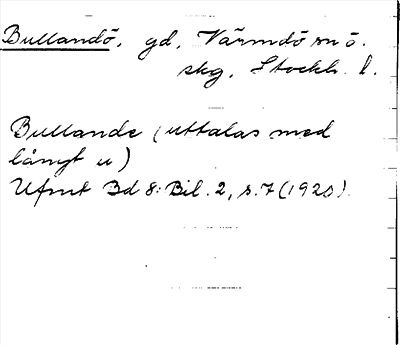 Bullandö, gd, Värmdö sn ö.
skg, Stockh. l.
Bullande (uttalas med
långt u)
Ufmt Bd 8: Bil. 2, s. 7 (1920).